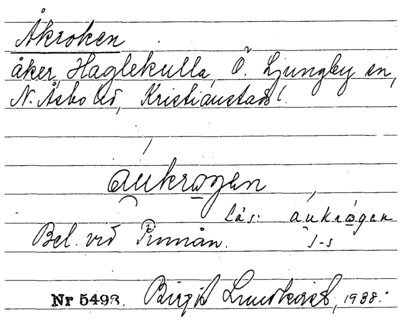 Åkroken
åker, Haglekulla, Ö. Ljungby sn,
N. Åsbo hd, Kristianstads l.
áukrøgen
läs: áukrøgen
Bel. vid Pinnån. s-s
Nr 5493. Birgit Lundkvist, 1938.